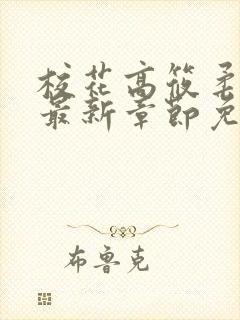 校花高筱柔
最新章節免
布鲁克